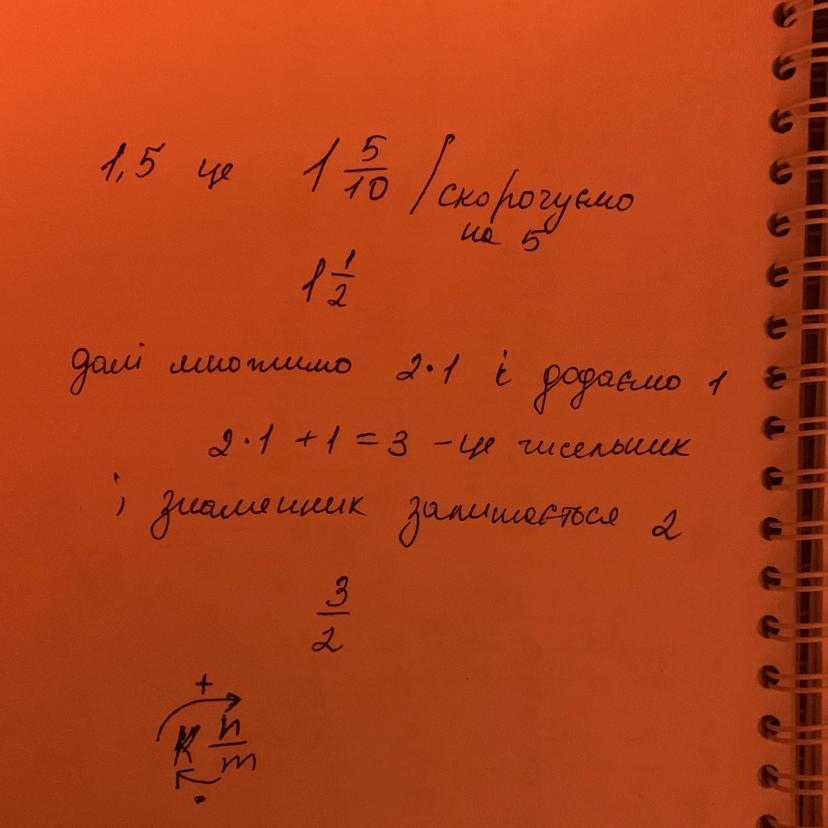 1,5 це 1 5/10 / скорочуємо
на 5
1 1/2
далі множимо 2·1 і додаємо 1
2·1 + 1 = 3 – це чисельник
і знаменник залишається 2
3/2
+
K n/m
·